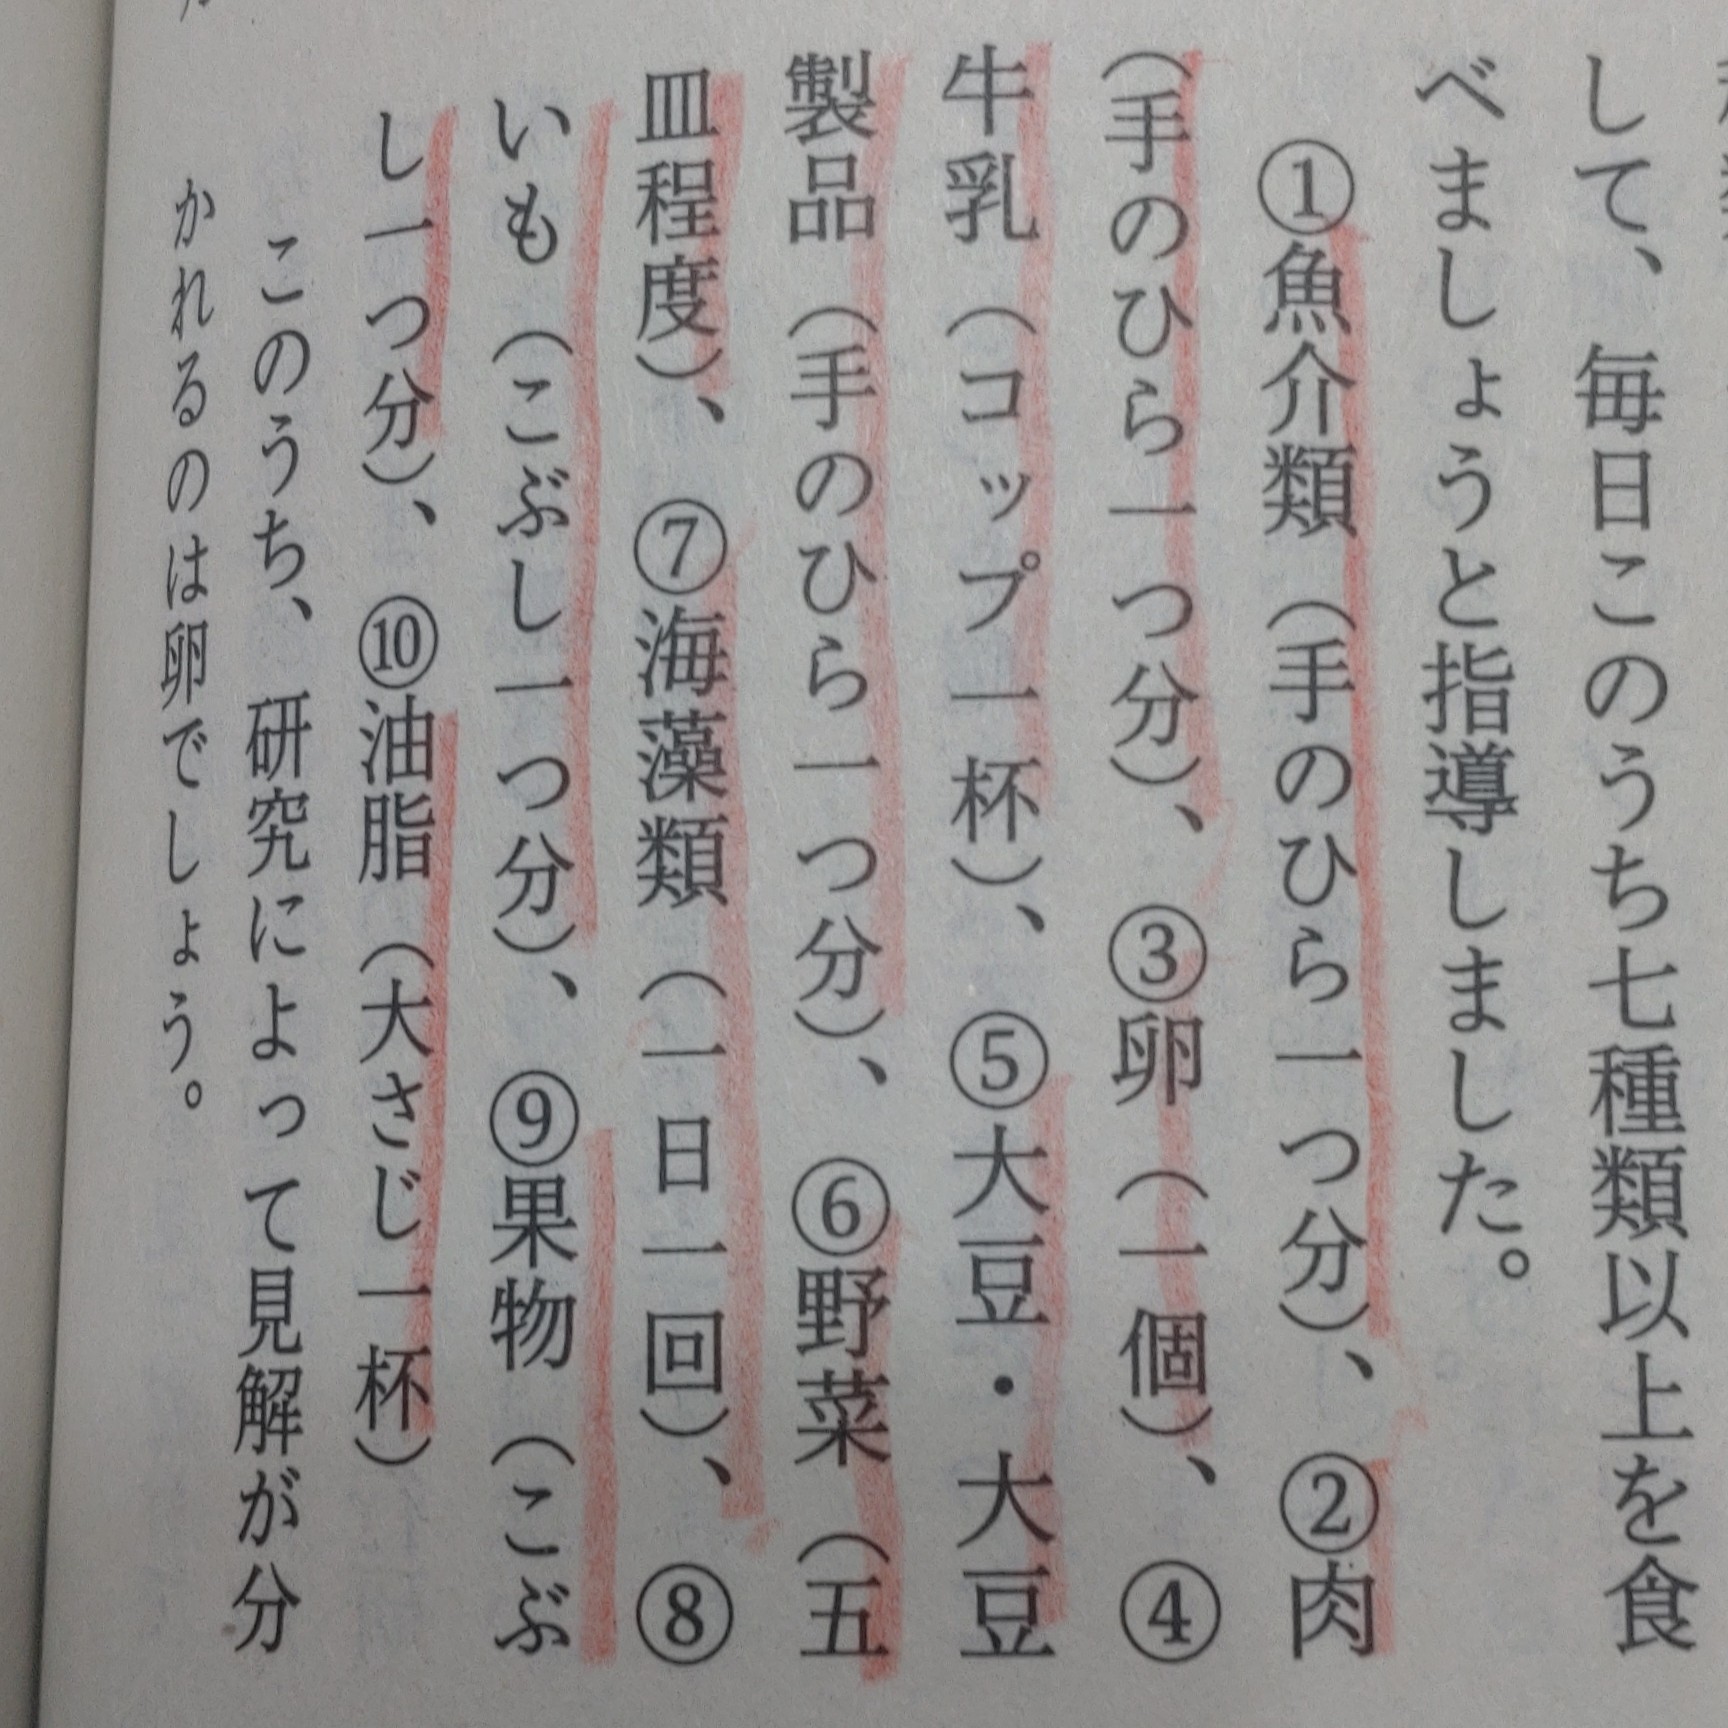 して、毎日このうち七種類以上を食
べましょうと指導しました。
①魚介類（手のひら一つ分）、②肉
（手のひら一つ分）、③卵（一個）、④
牛乳（コップ一杯）、⑤大豆・大豆
製品（手のひら一つ分）、⑥野菜（五
皿程度）、⑦海藻類（一日一回）、⑧
いも（こぶし一つ分）、⑨果物（こぶ
し一つ分）、⑩油脂（大さじ一杯）
このうち、研究によって見解が分
かれるのは卵でしょう。